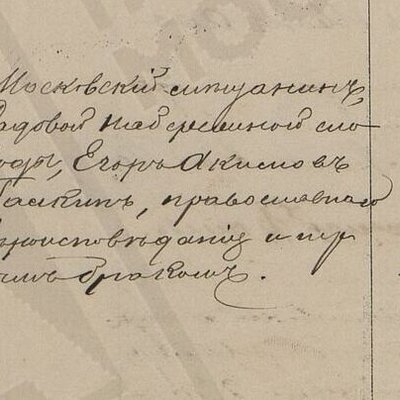 Московскій мѣщанинъ,
Садовой Набережной сло
боды, Егоръ Акимовъ
, православнаго
вѣроисповѣданія и пер
вымъ бракомъ.